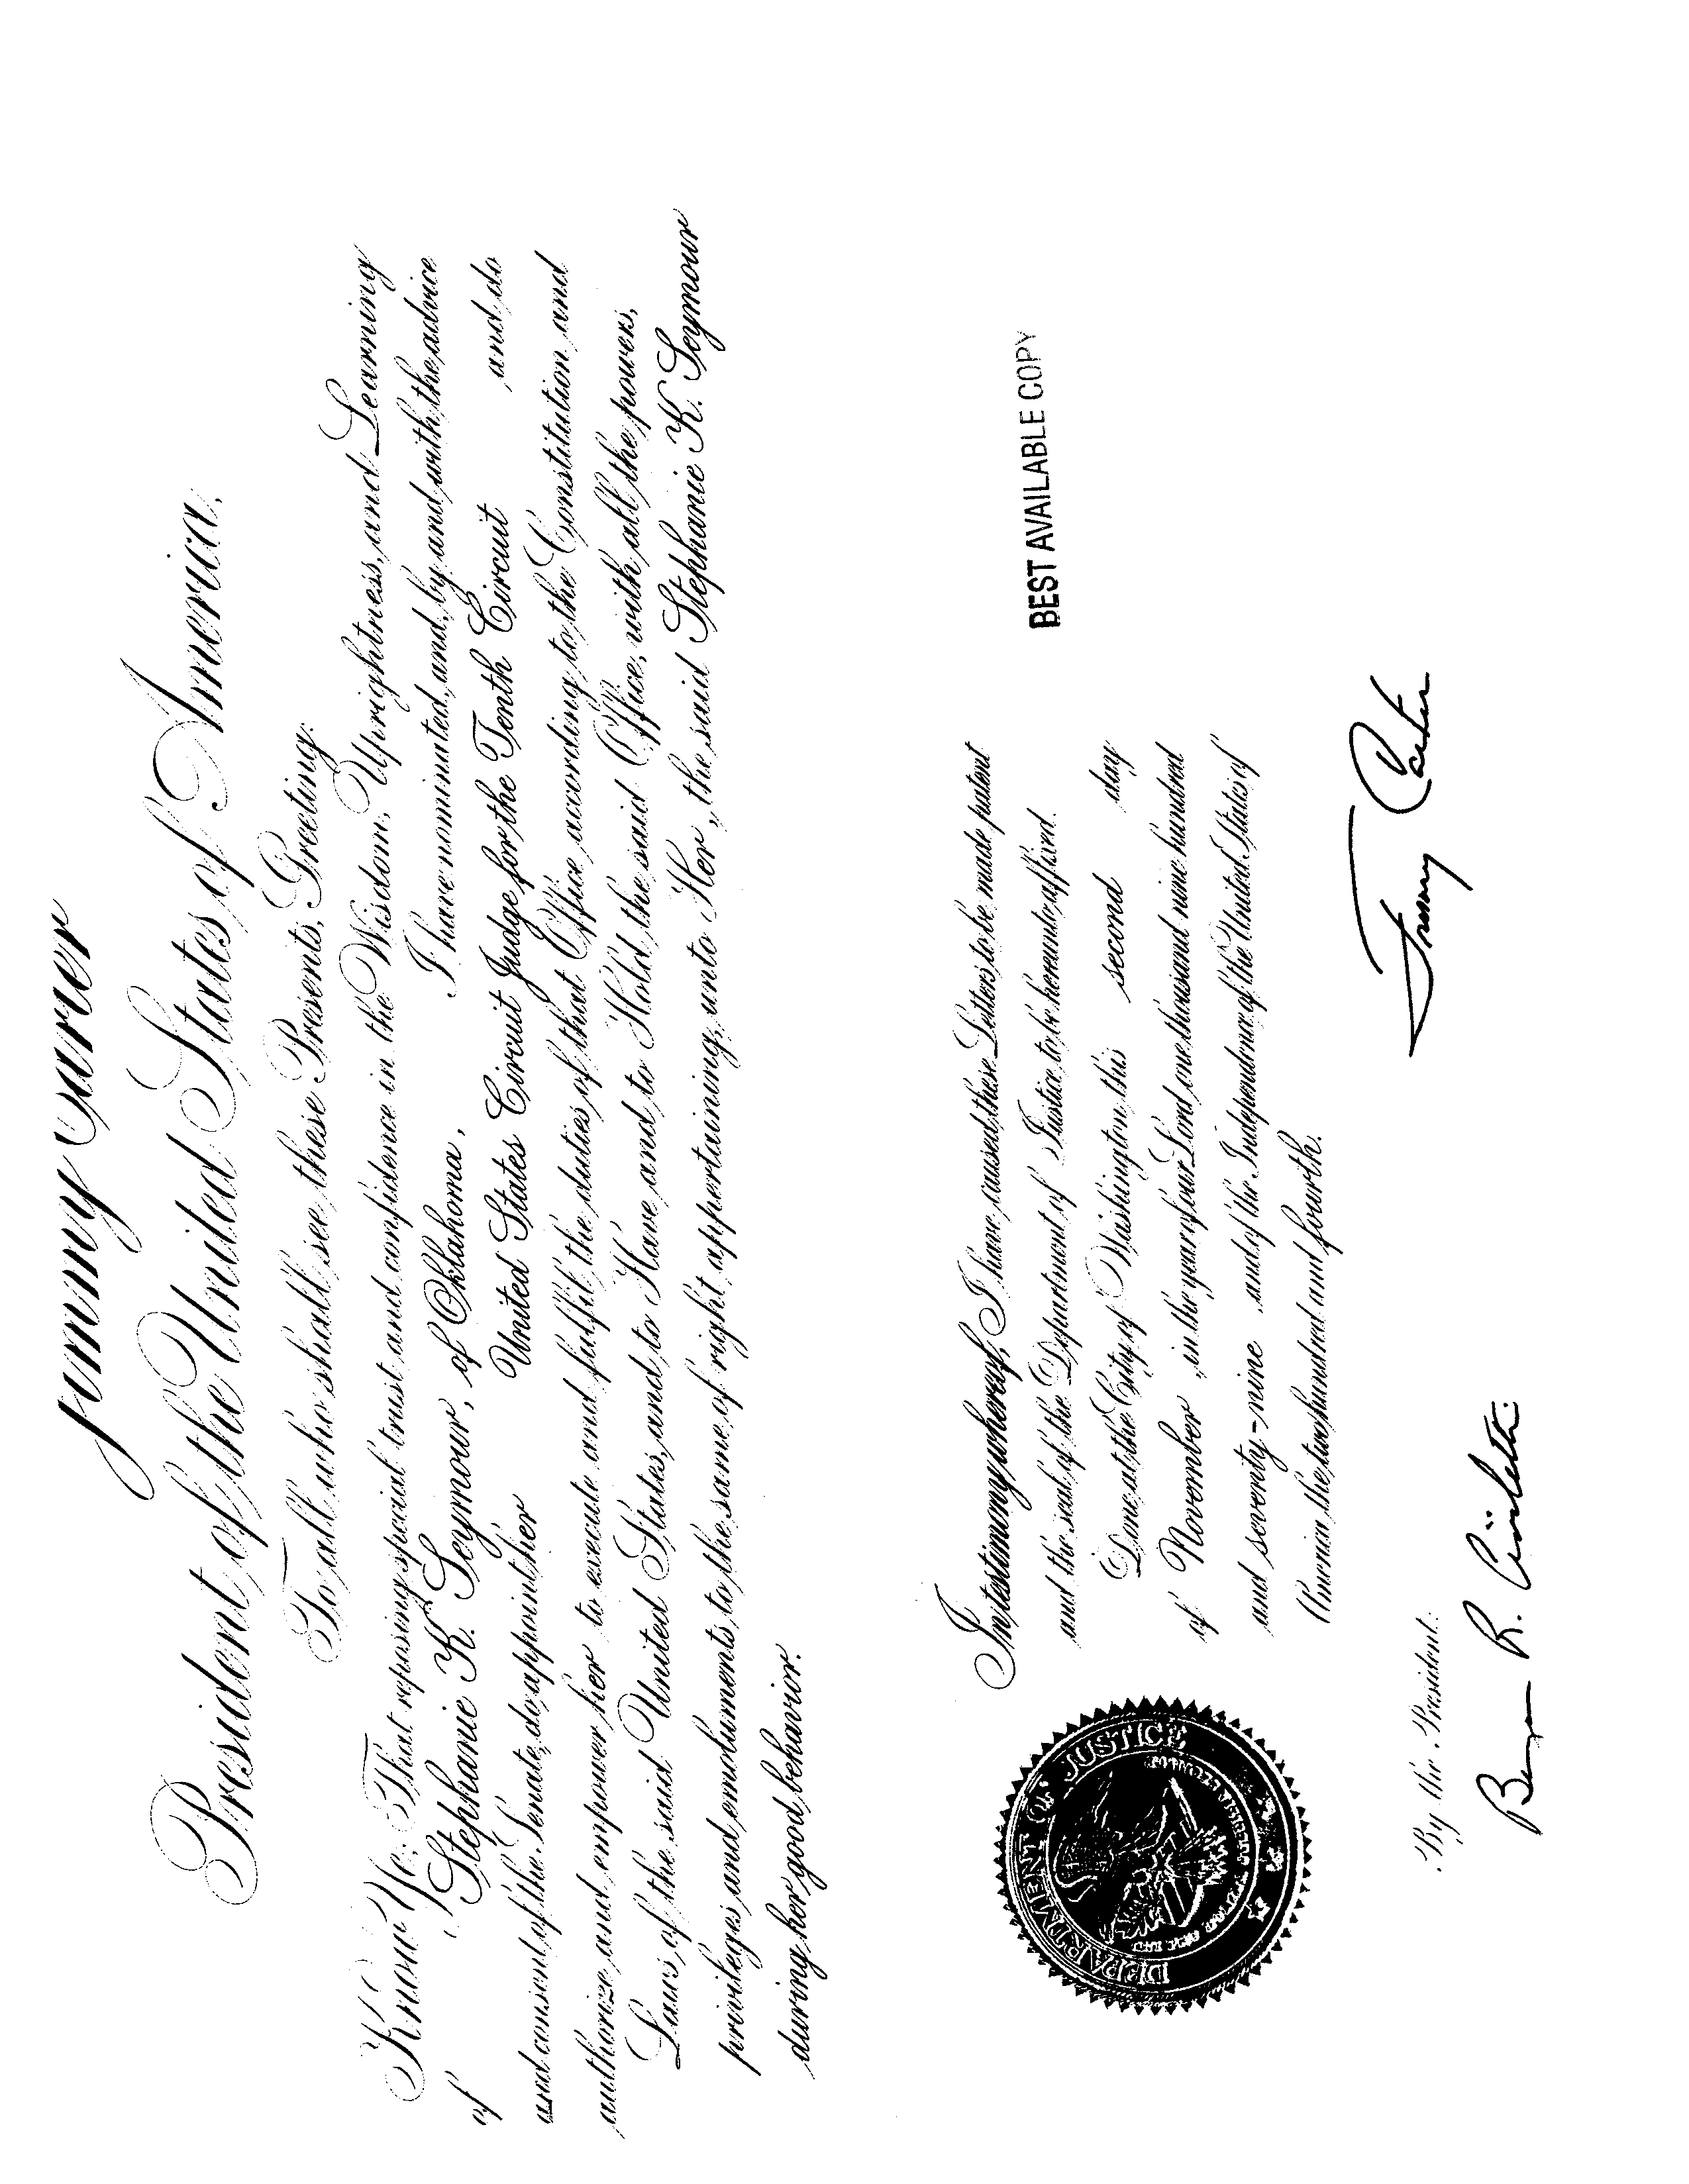 Jimmy Carter
President of the United States of America,
To all who shall see these Presents, Greeting:
Know Ye; That reposing special trust and confidence in the Wisdom, Uprightness, and Learning
of Stephanie K. Seymour, of Oklahoma, I have nominated, and, by and with the advice
and consent of the Senate, do appoint her United States Circuit Judge for the Tenth Circuit and do
authorize and empower her to execute and fulfil the duties of that Office according to the Constitution and
Laws of the said United States, and to Have and to Hold the said Office, with all the powers,
privileges and emoluments to the same of right appertaining, unto Her, the said Stephanie K. Seymour
during her good behavior.
In testimony whereof, I have caused these Letters to be made patent
and the seal of the Department of Justice to be hereunto affixed.
Done at the City of Washington this second day
of November, in the year of our Lord one thousand nine hundred
and seventy-nine and of the Independence of the United States of
America the two hundred and fourth.
BEST AVAILABLE COPY
DEPARTMENT OF JUSTICE
Jimmy Carter
By the President:
Benjamin R. Civiletti